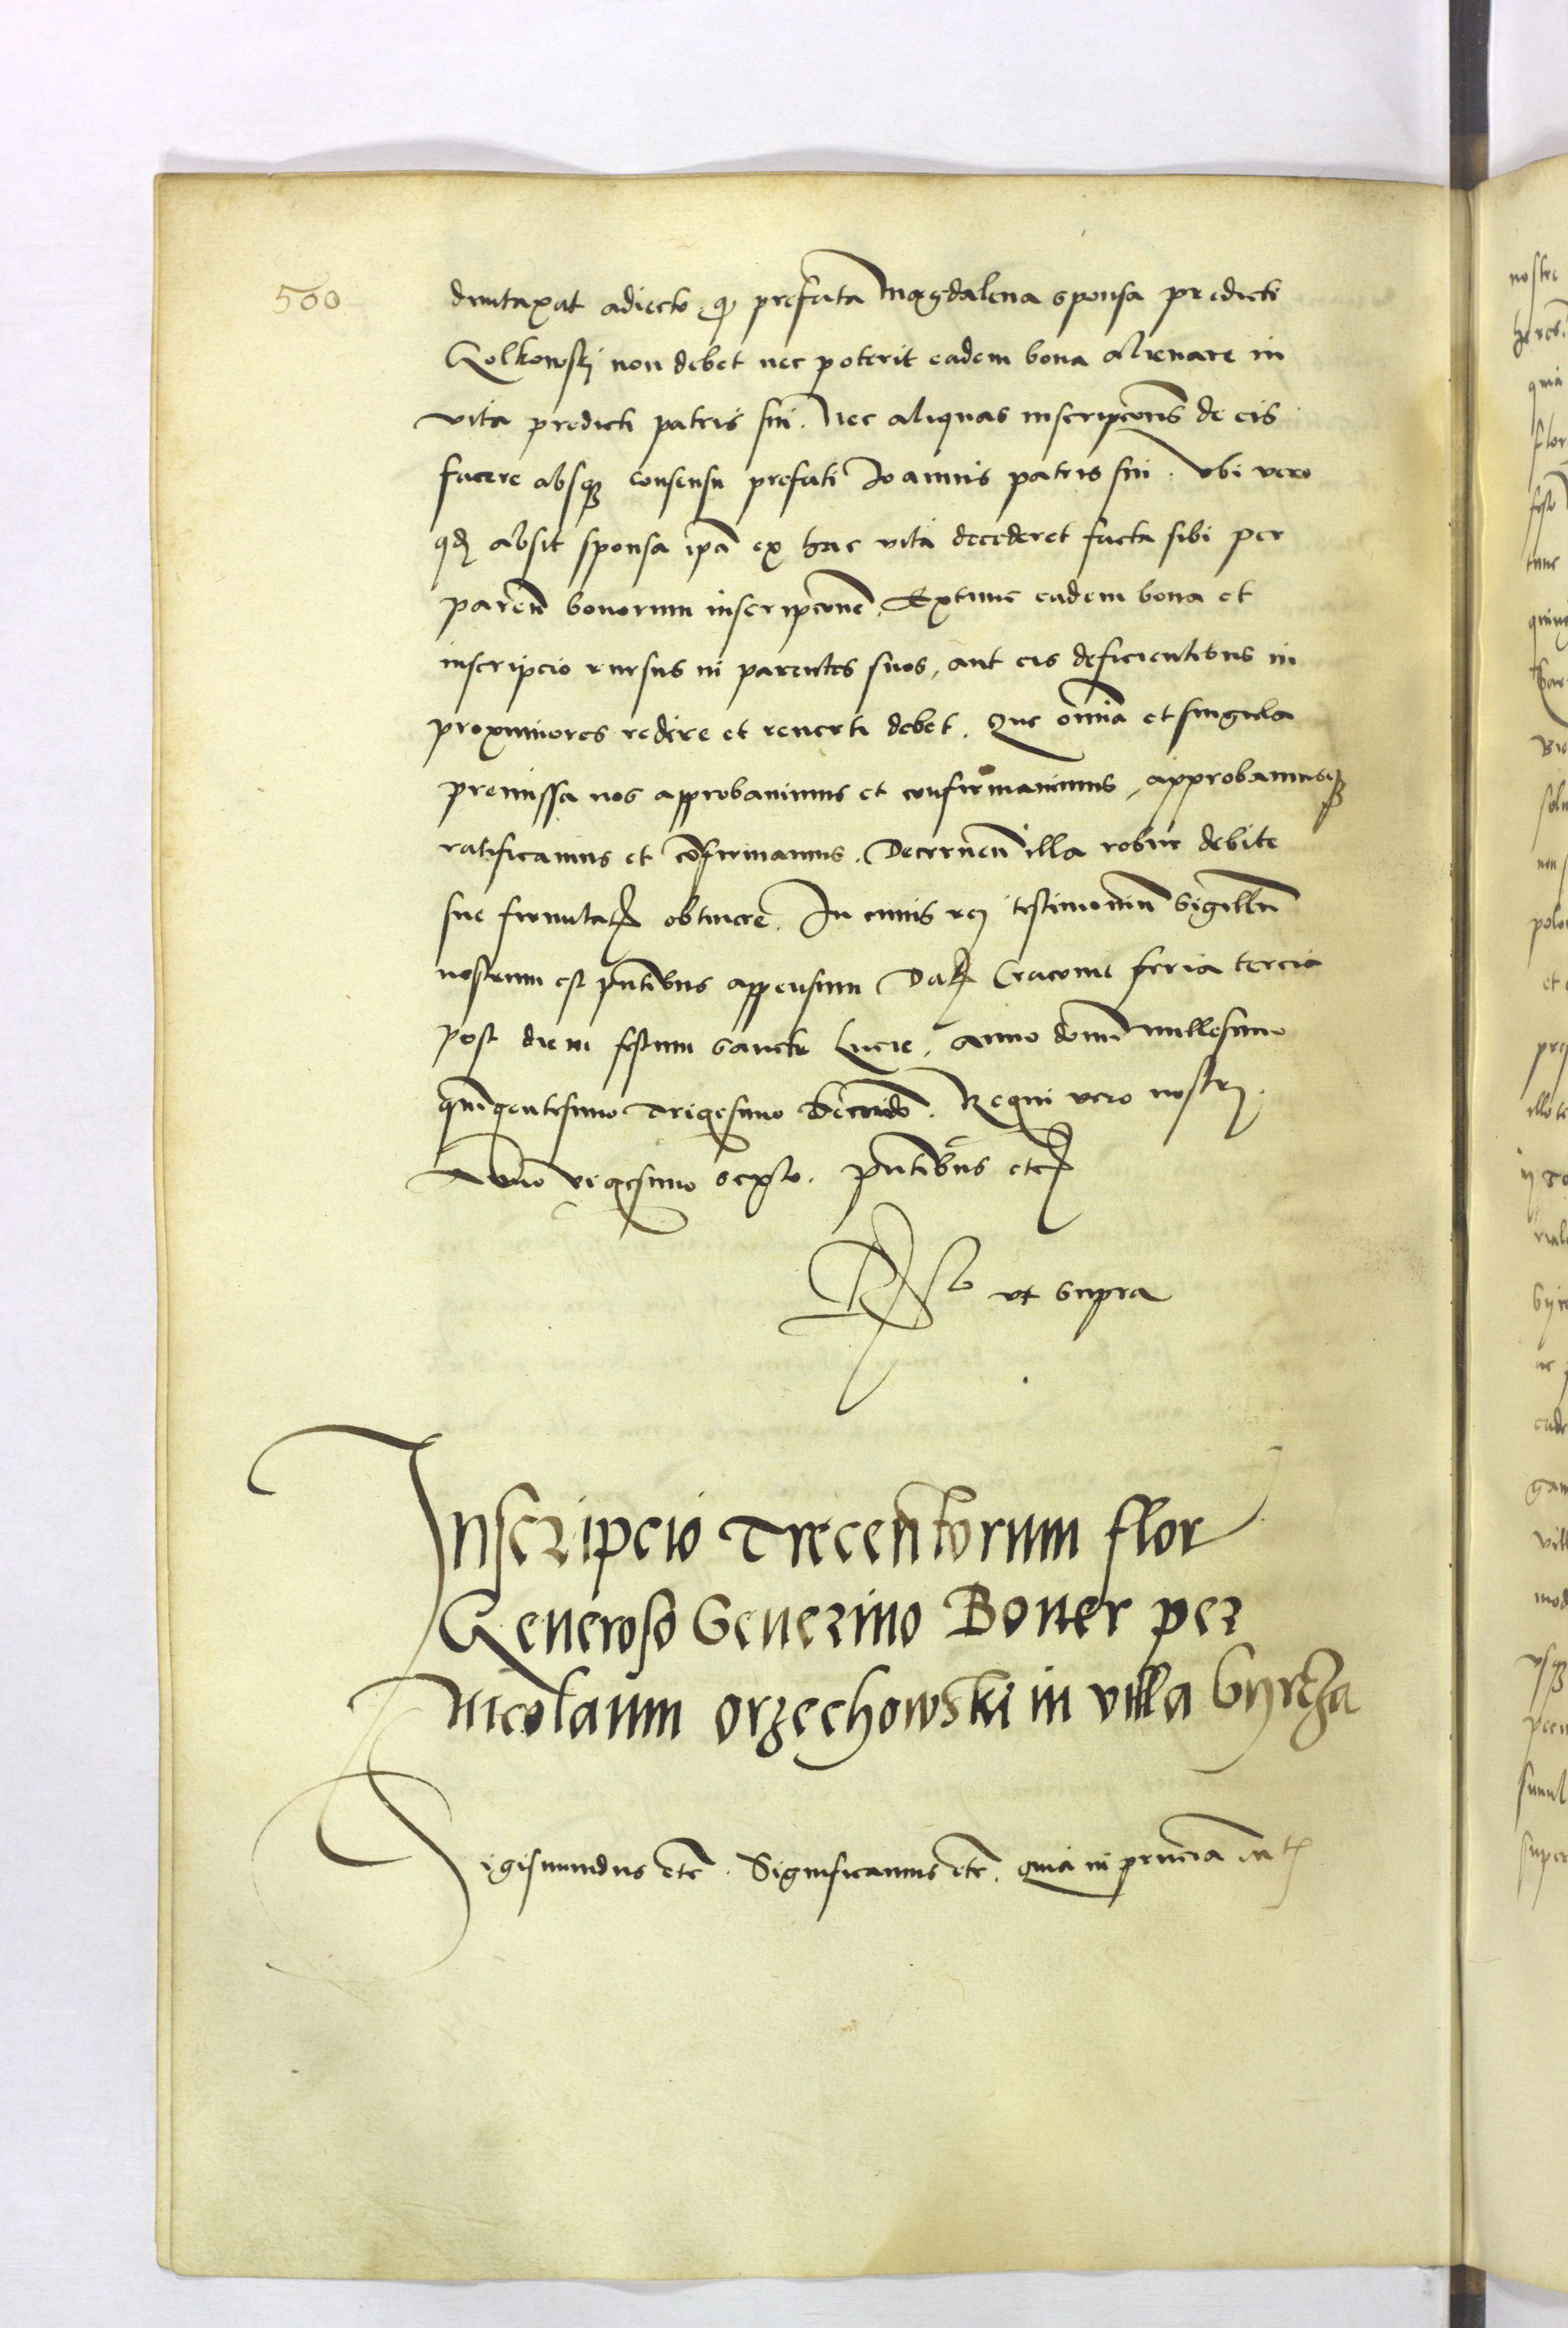 500
dumtaxat adiecto, q prefata Magdalena sponsa predicti
Golkowskj non debet nec poterit eadem bona alienare in
vita predicti patris sui. Nec aliquas inscripcōns de eis
facere absq consensu prefati Joannis patris sui. Vbi vero
qđ absit sponsa ipā ex hac vita decederet facta sibi per
paren̄ bonorum inscripcōne. Extunc eadem bona et
inscripcio rursus in parentes suos, aut eis deficientibus in
proximiores redire et reuerti debet. Que om̄ia et singula
premissa nos approbauimus et confirmauimus, approbamusq
ratificamus et cōfirmamus. Decernen̄ illa robur debite
sue firmitatȩ obtinere. In cuius rej testimoniū sigillū
nostrum est pn̄tibus appensum Dat Cracouie feria tercia
post diem festum sancte Lucie, anno domī millesimo
quīgentesimo trigesimo secundo. Regni vero nostrj
Anno vigesimo sexto. pn̄tibus etc
Rlō vt supra
Inscripcio Trecentorum flor
Generoso Seuerino Boner per
Nicolaum Orzechowski in villa Syrcza
Sigismundus etc. Significamus etc. quia in pn̄cia
nostre
heres
quia
flor
festo
tunc